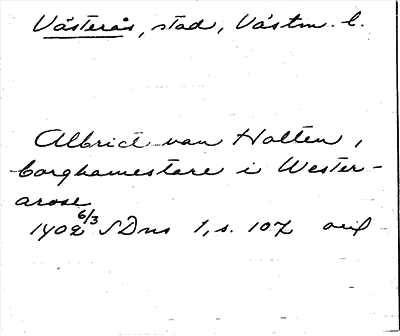 Västerås, stad, Västm. l.
Albrict van Holten,
borghamestare i Wester-
arose
1402 6/3 SDns 1, s. 107 avil